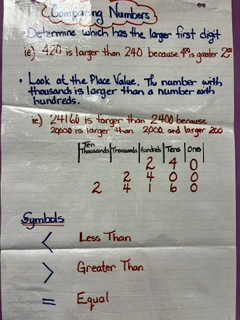 Comparing Numbers
• Determine which has the larger first digit
ie) 420 is larger than 240 because 400 is greater 200
• Look at the Place Value. The number with
thousands is larger than a number with
hundreds.
ie) 24160 is larger than 2400 because
20000 is larger than 2000 and larger 200
Ten Thousands Thousands Hundreds Tens Ones
2 4 0
2 4 0 0
2 4 1 6 0
Symbols
< Less Than
> Greater Than
= Equal